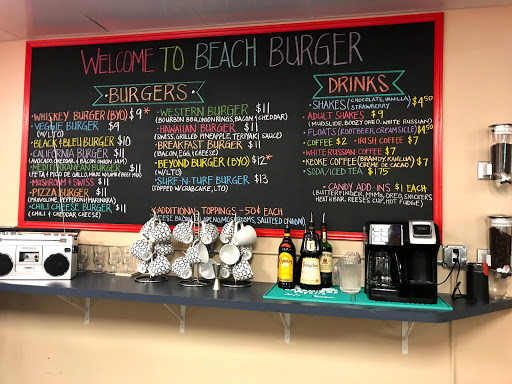 WELCOME TO BEACH BURGER
• BURGERS •
• WHISKEY BURGER (BYO) $9 *
VEGGIE BURGER $9
(W/LTO)
BLACK & BLEU BURGER $10
(BACON & ONION JAM)
• CALIFORNIA BURGER $11
(AVOCADO, CHEDDAR & BACON ONION JAM)
• MEDITERRANEAN BURGER $11
• MUSHROOM & SWISS $11
• PIZZA BURGER $11
(PROVOLONE, PEPPERONI, MARINARA)
• CHILI CHEESE BURGER $11
(CHILI & CHEDDAR CHEESE)
• WESTERN BURGER $11
(BOURBON BBQ, ONION RINGS, BACON, CHEDDAR)
• HAWAIIAN BURGER $11
(SWISS, GRILLED PINEAPPLE, TERIYAKI SAUCE)
• BREAKFAST BURGER $11
(BACON, EGG, CHEESE)
• BEYOND BURGER (BYO) $12 *
• SURF-N-TURF BURGER $13
(TOPPED W/ CRAB CAKE, LTO)
* ADDITIONAL TOPPINGS - 50¢ EACH
SAUTÉED ONION)
DRINKS
• SHAKES (CHOCOLATE, VANILLA, STRAWBERRY) $4.50
• ADULT SHAKES $9
(MUDSLIDE, BOOZY OREO, WHITE RUSSIAN)
• FLOATS (ROOTBEER, CREAMSICLE) $4.50
• COFFEE $2 • IRISH COFFEE $7
• WHITE RUSSIAN COFFEE $7
• KEOKE COFFEE (BRANDY, KAHLUA, CREME DE CACAO) $7
• SODA/ICED TEA $1.75
• CANDY ADD-INS $1 EACH
(BUTTERFINGER, M&MS, OREO, SNICKERS
HEATH BAR, REESE'S CUP, HOT FUDGE)